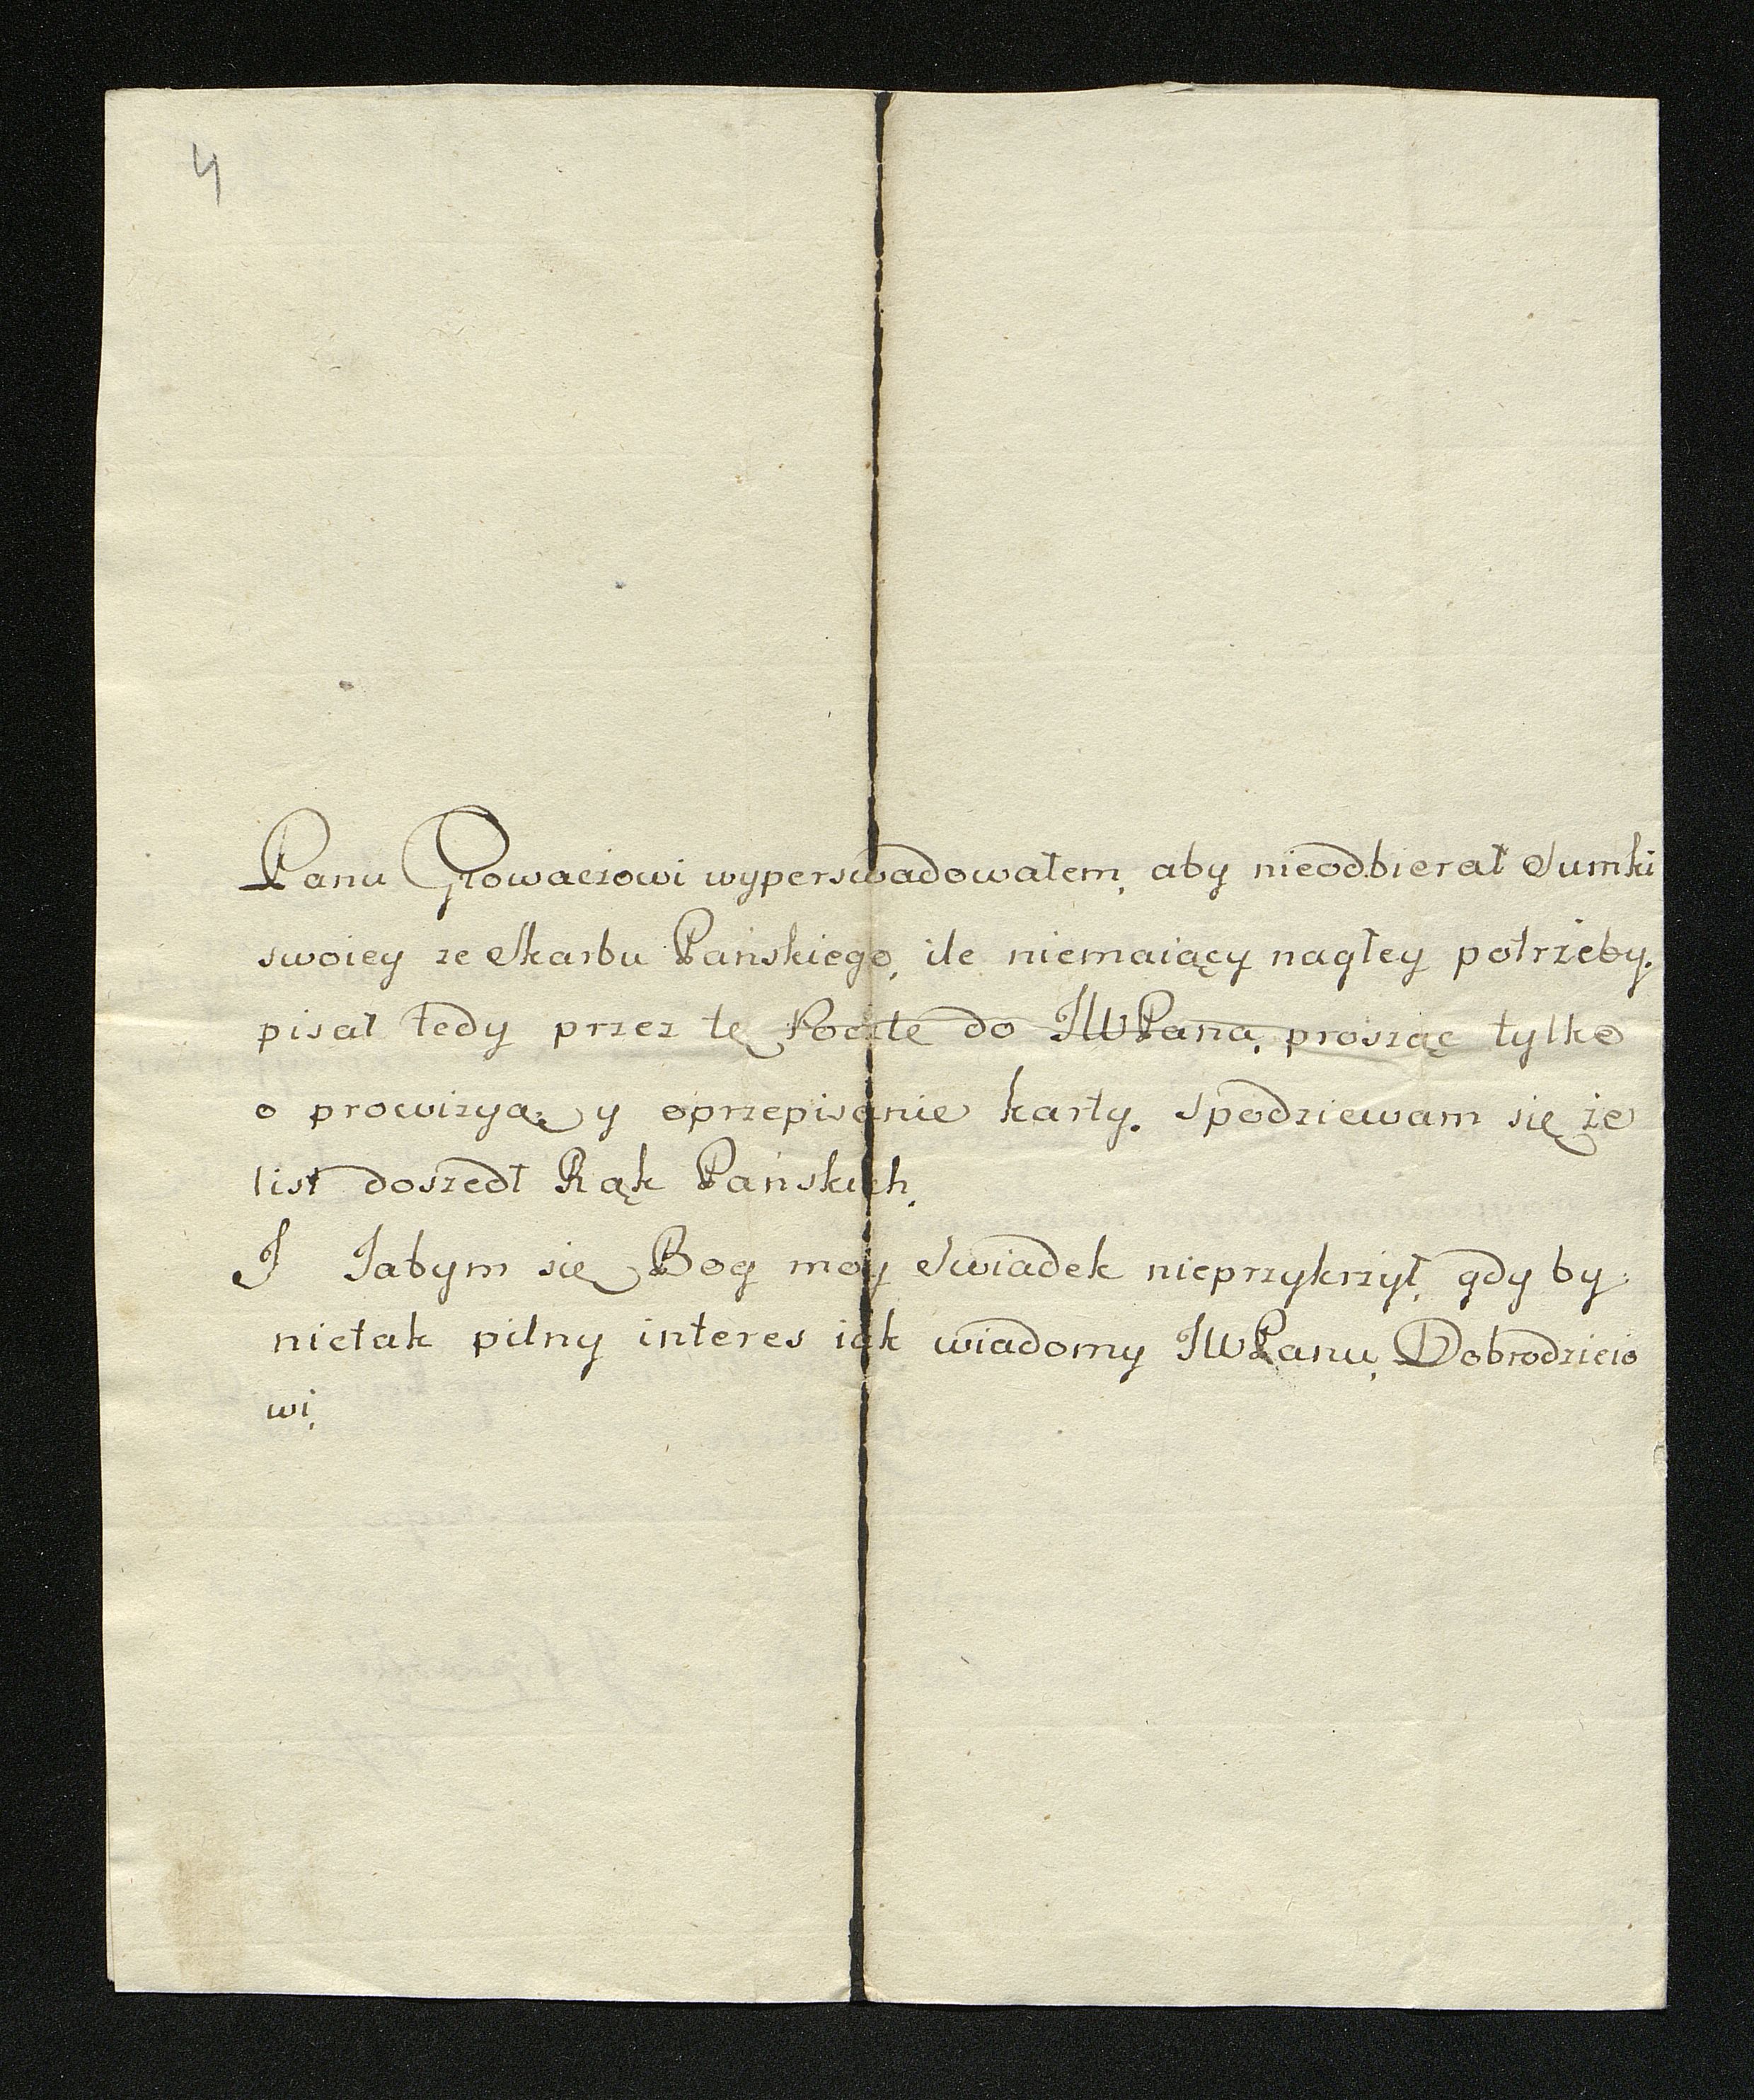 4
Panu Głowaczowi wyperswadowałem, aby nieodbierał Sumki
swoiey ze Skarbu Pańskiego, ile niemaiący nagłey potrzeby.
pisał tedy przez tę Pocztę do JWPana, prosząc tylko
o prowizyą, y oprzepisanie karty. Spodziewam się że
list doszedł Rąk Pańskich.
J Jabym się Bog moy Swiadek nieprzykrzył, gdy by
nietak pilny interes iak wiadomy JWPanu, Dobrodzieio
wi.